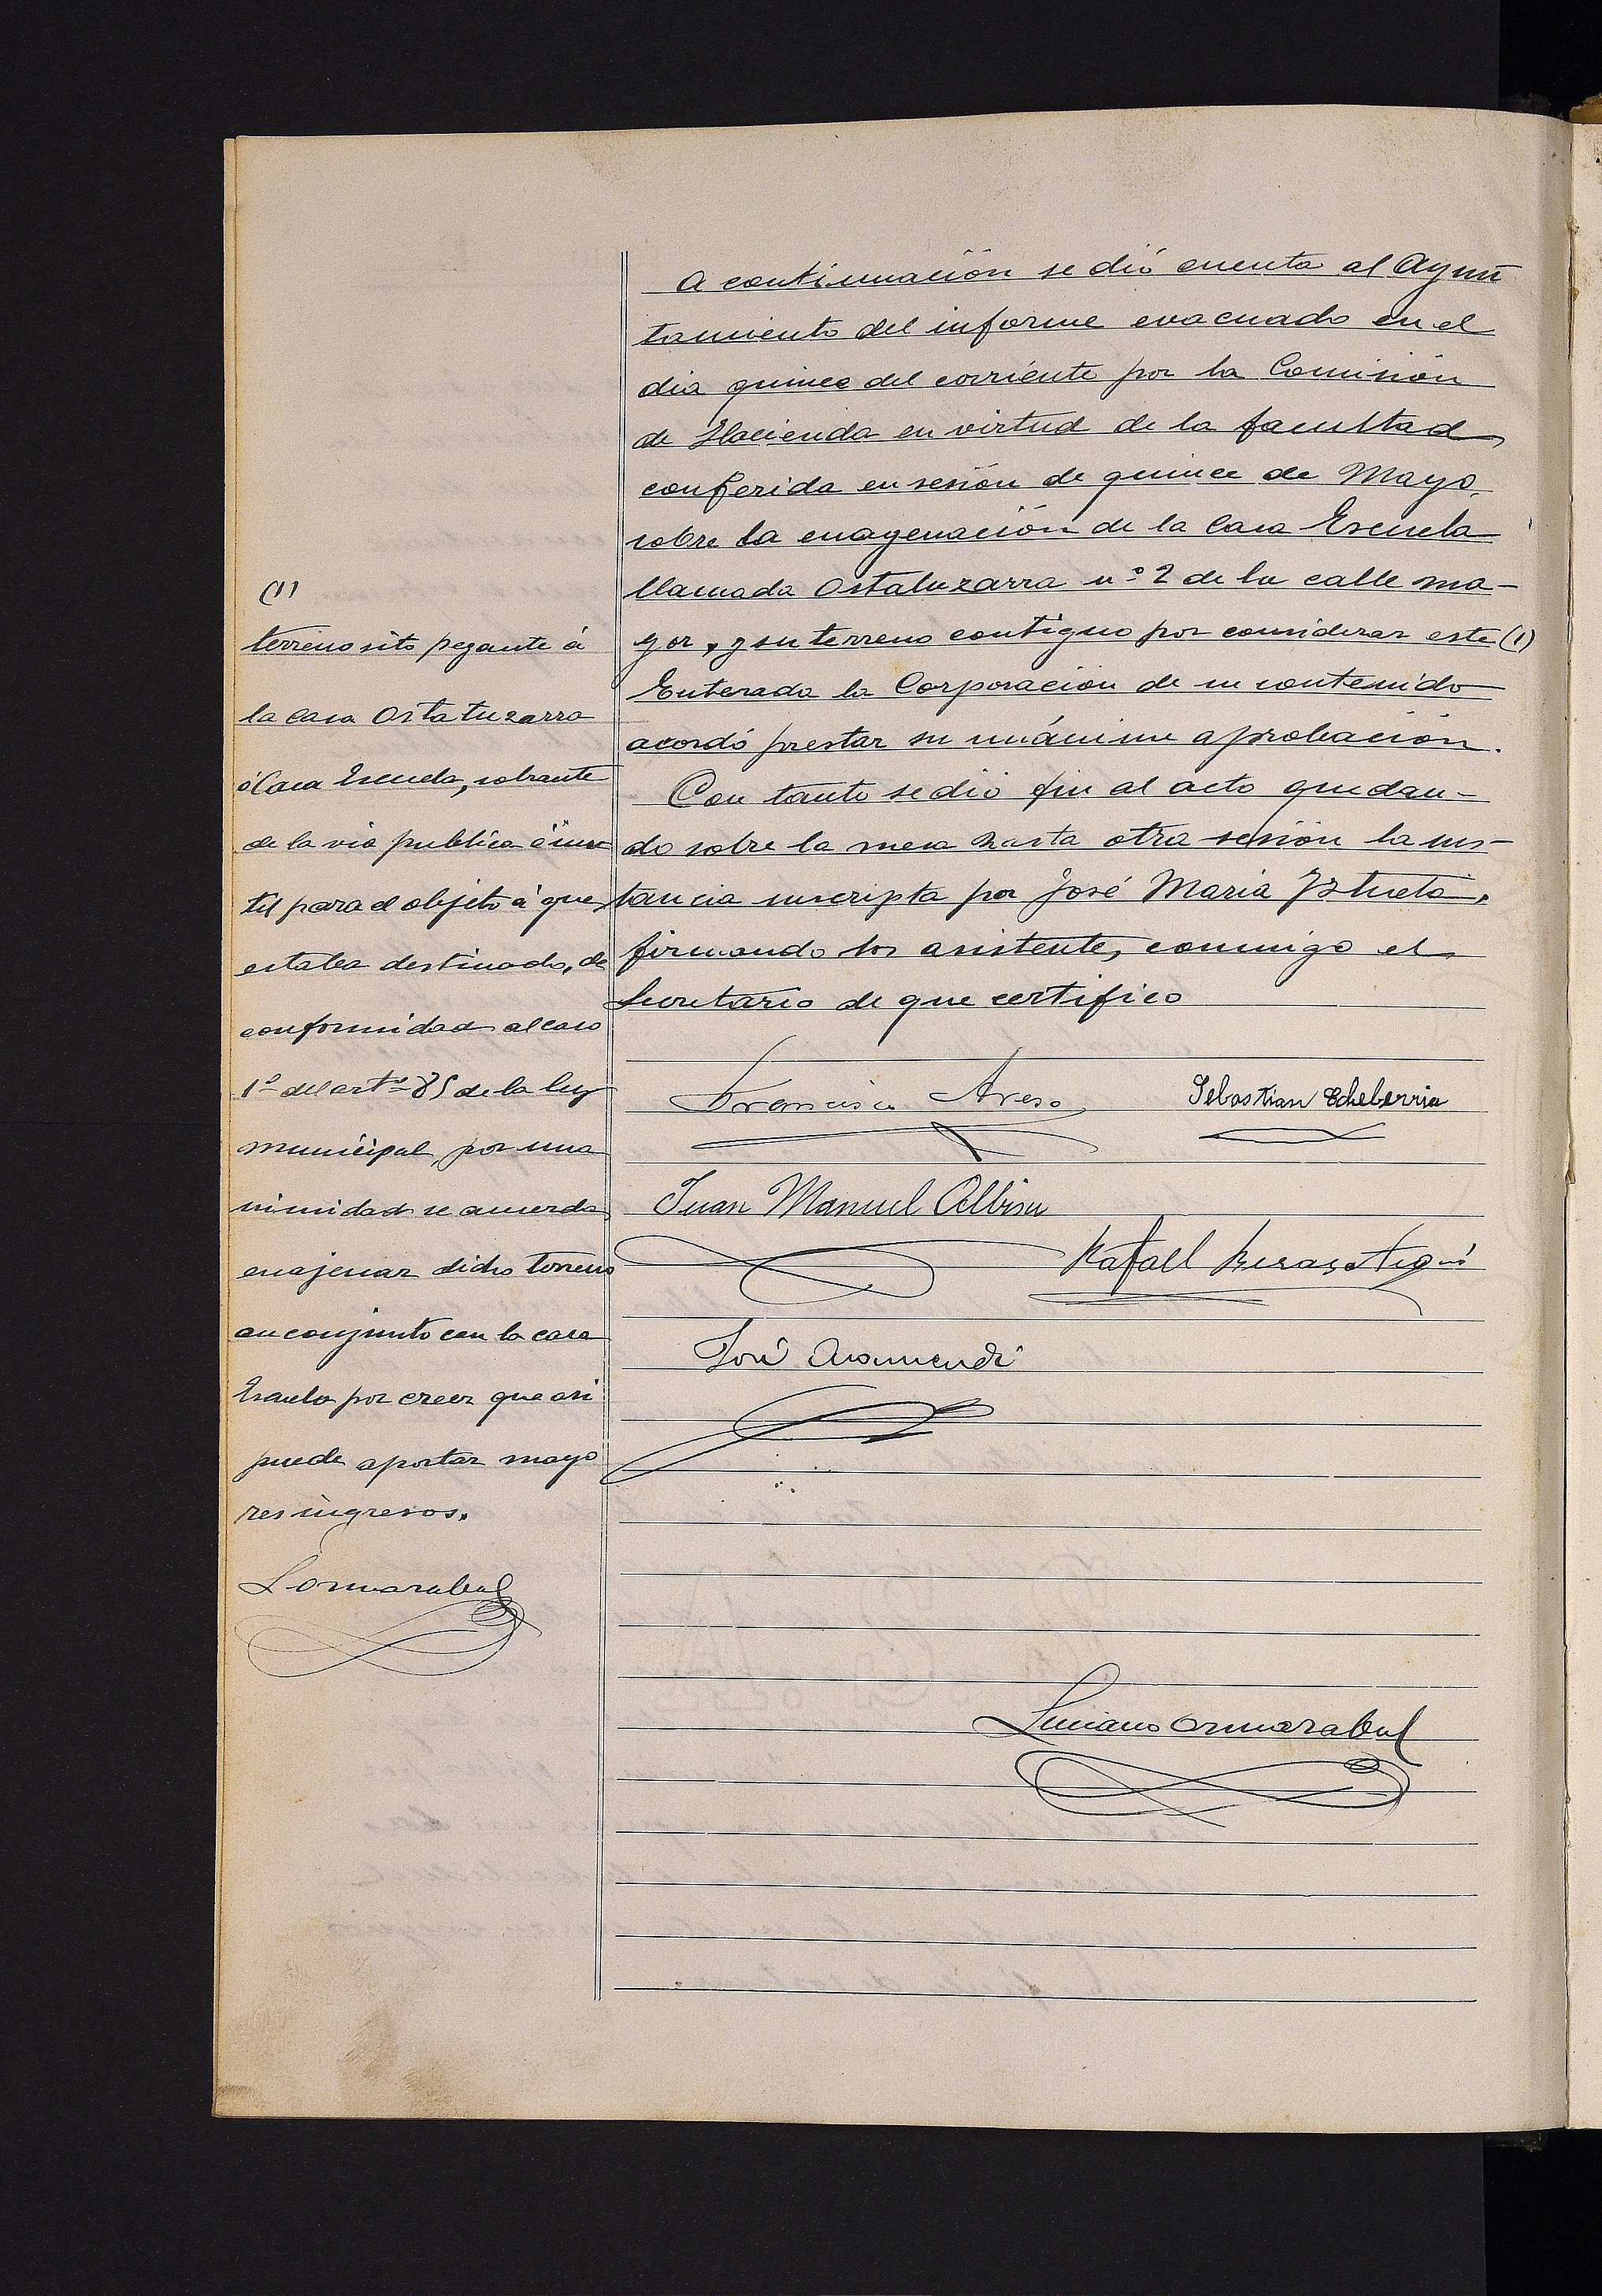 A continuación se dió cuenta al Ayun
tamiento del informe evacuado en el
dia quince del corriente por la Comisión
de Hacienda en virtud de la facultad
conferida en sesión de quince de Mayo,
sobre la enagenación de la Casa Escuela
llamada Ostatuzarra nº 2 de la calle ma-
yor, y su terreno contiguo por considerar este (1)
Enterada la Corporación de su contenido
acordó prestar su unánime aprobación.
Con tanto se dió fin al acto quedan-
do sobre la mesa hasta otra sesión la ins-
tancia suscripta por José Maria Iztueta,
firmando los asistentes, conmigo el
Secretario de que certifico
Francisco Areso
Sebastian Echeberria
Juan Manuel Albisu
Rafael Berasategui
José Aramendi
Luciano Ormazabal
(1)
terreno sito pegante á
la casa Ostatuzarra
ó Casa Escuela, sobrante
de la via publica é inu
til para el objeto á que
estaba destinado, de
conformidad al caso
1º del artº 85 de la ley
municipal, por una
nimidad se acuerda
enajenar dicho terreno
en conjunto con la casa
Escuela por creer que asi
puede aportar mayo
res ingresos.
L Ormazabal